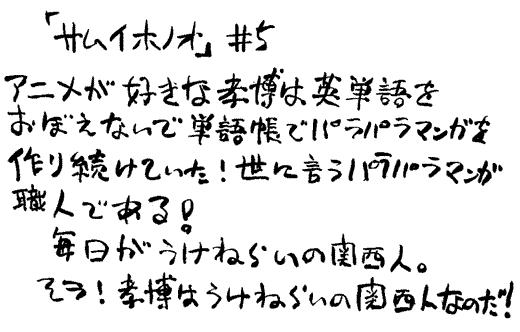 「サムイホノオ」#5
アニメが好きな孝博は英単語を
おぼえないで単語帳でパラパラマンガを
作り続けていた!世に言うパラパラマンガ
職人である!
毎日がうけねらいの関西人。
そう!孝博はうけねらいの関西人なのだ!